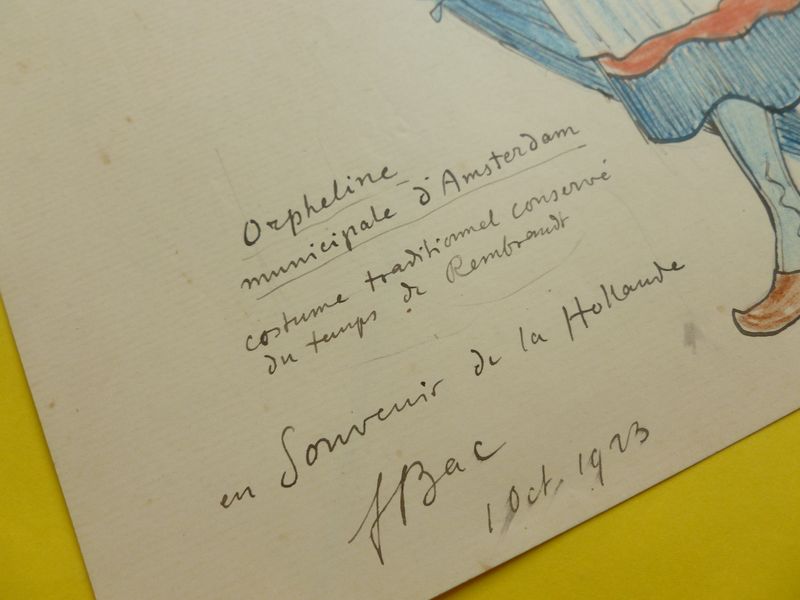 Orpheline
municipale d'Amsterdam
costume traditionnel conservé
du temps de Rembrandt
en Souvenir de la Hollande
FBac
1 Oct. 1923